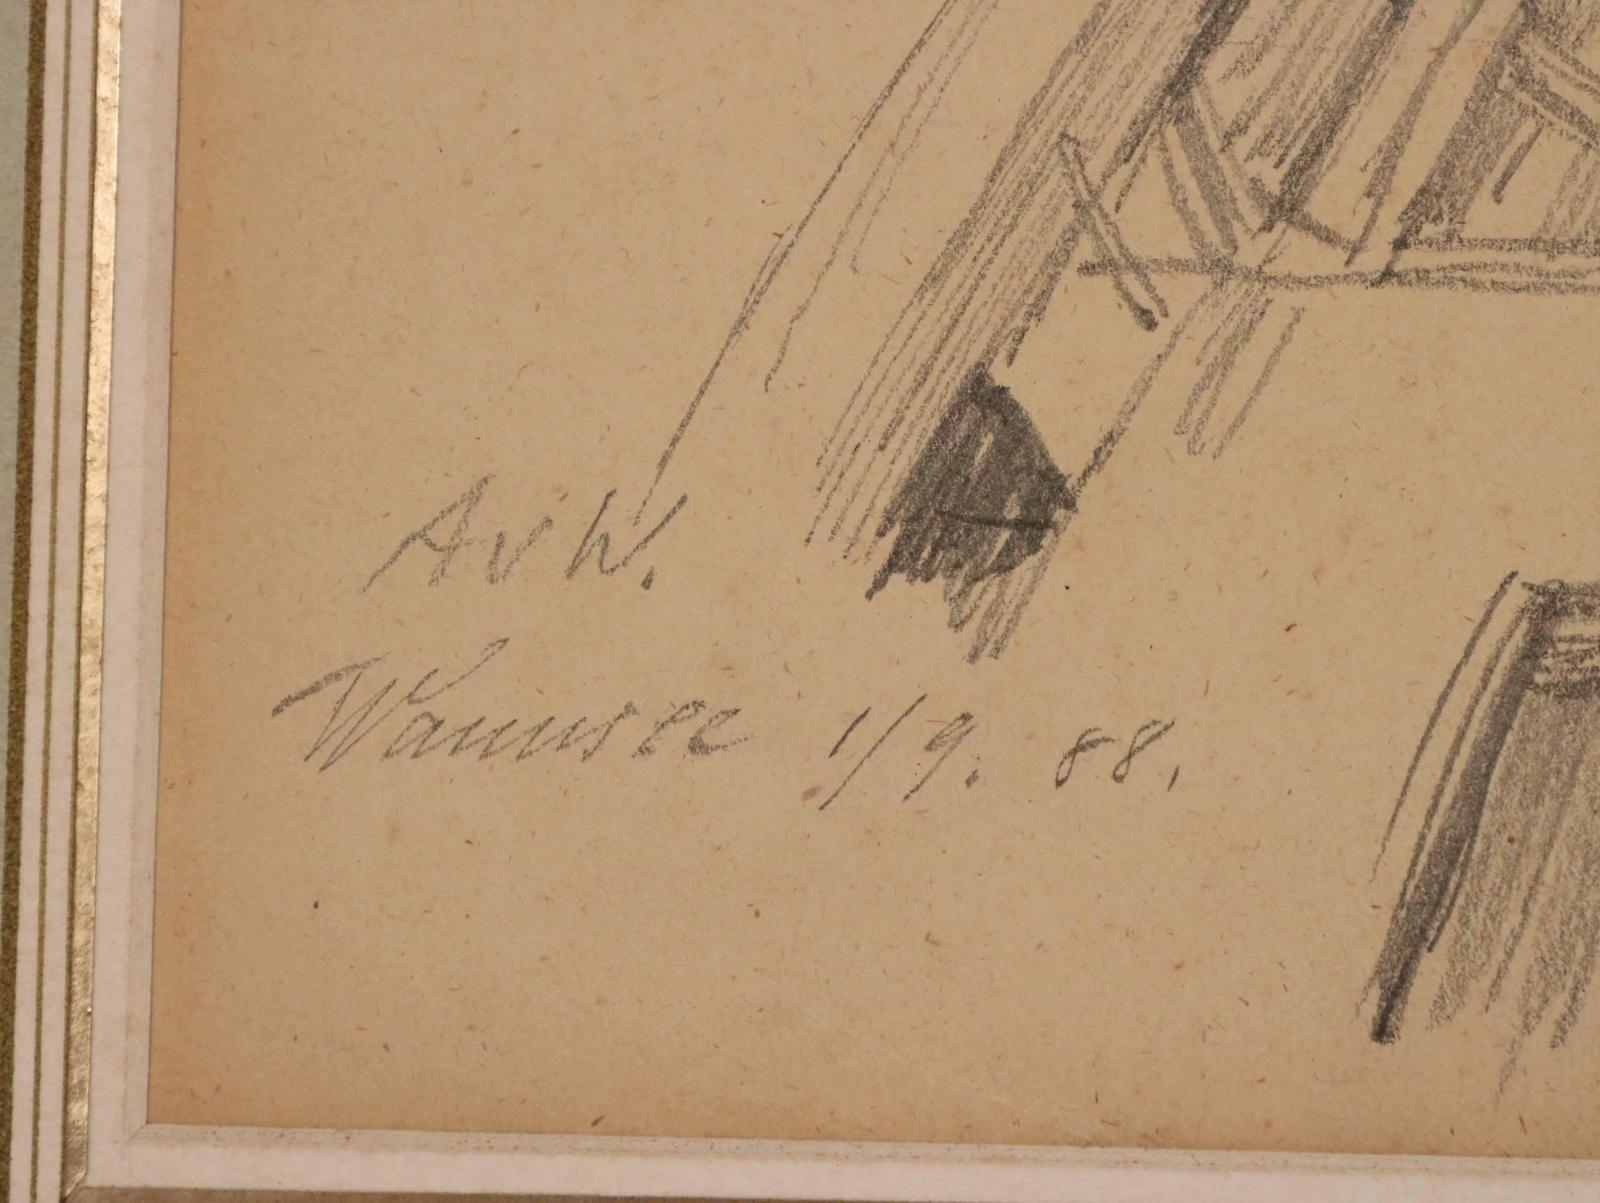 AvW.
Wannsee 1/9. 88.